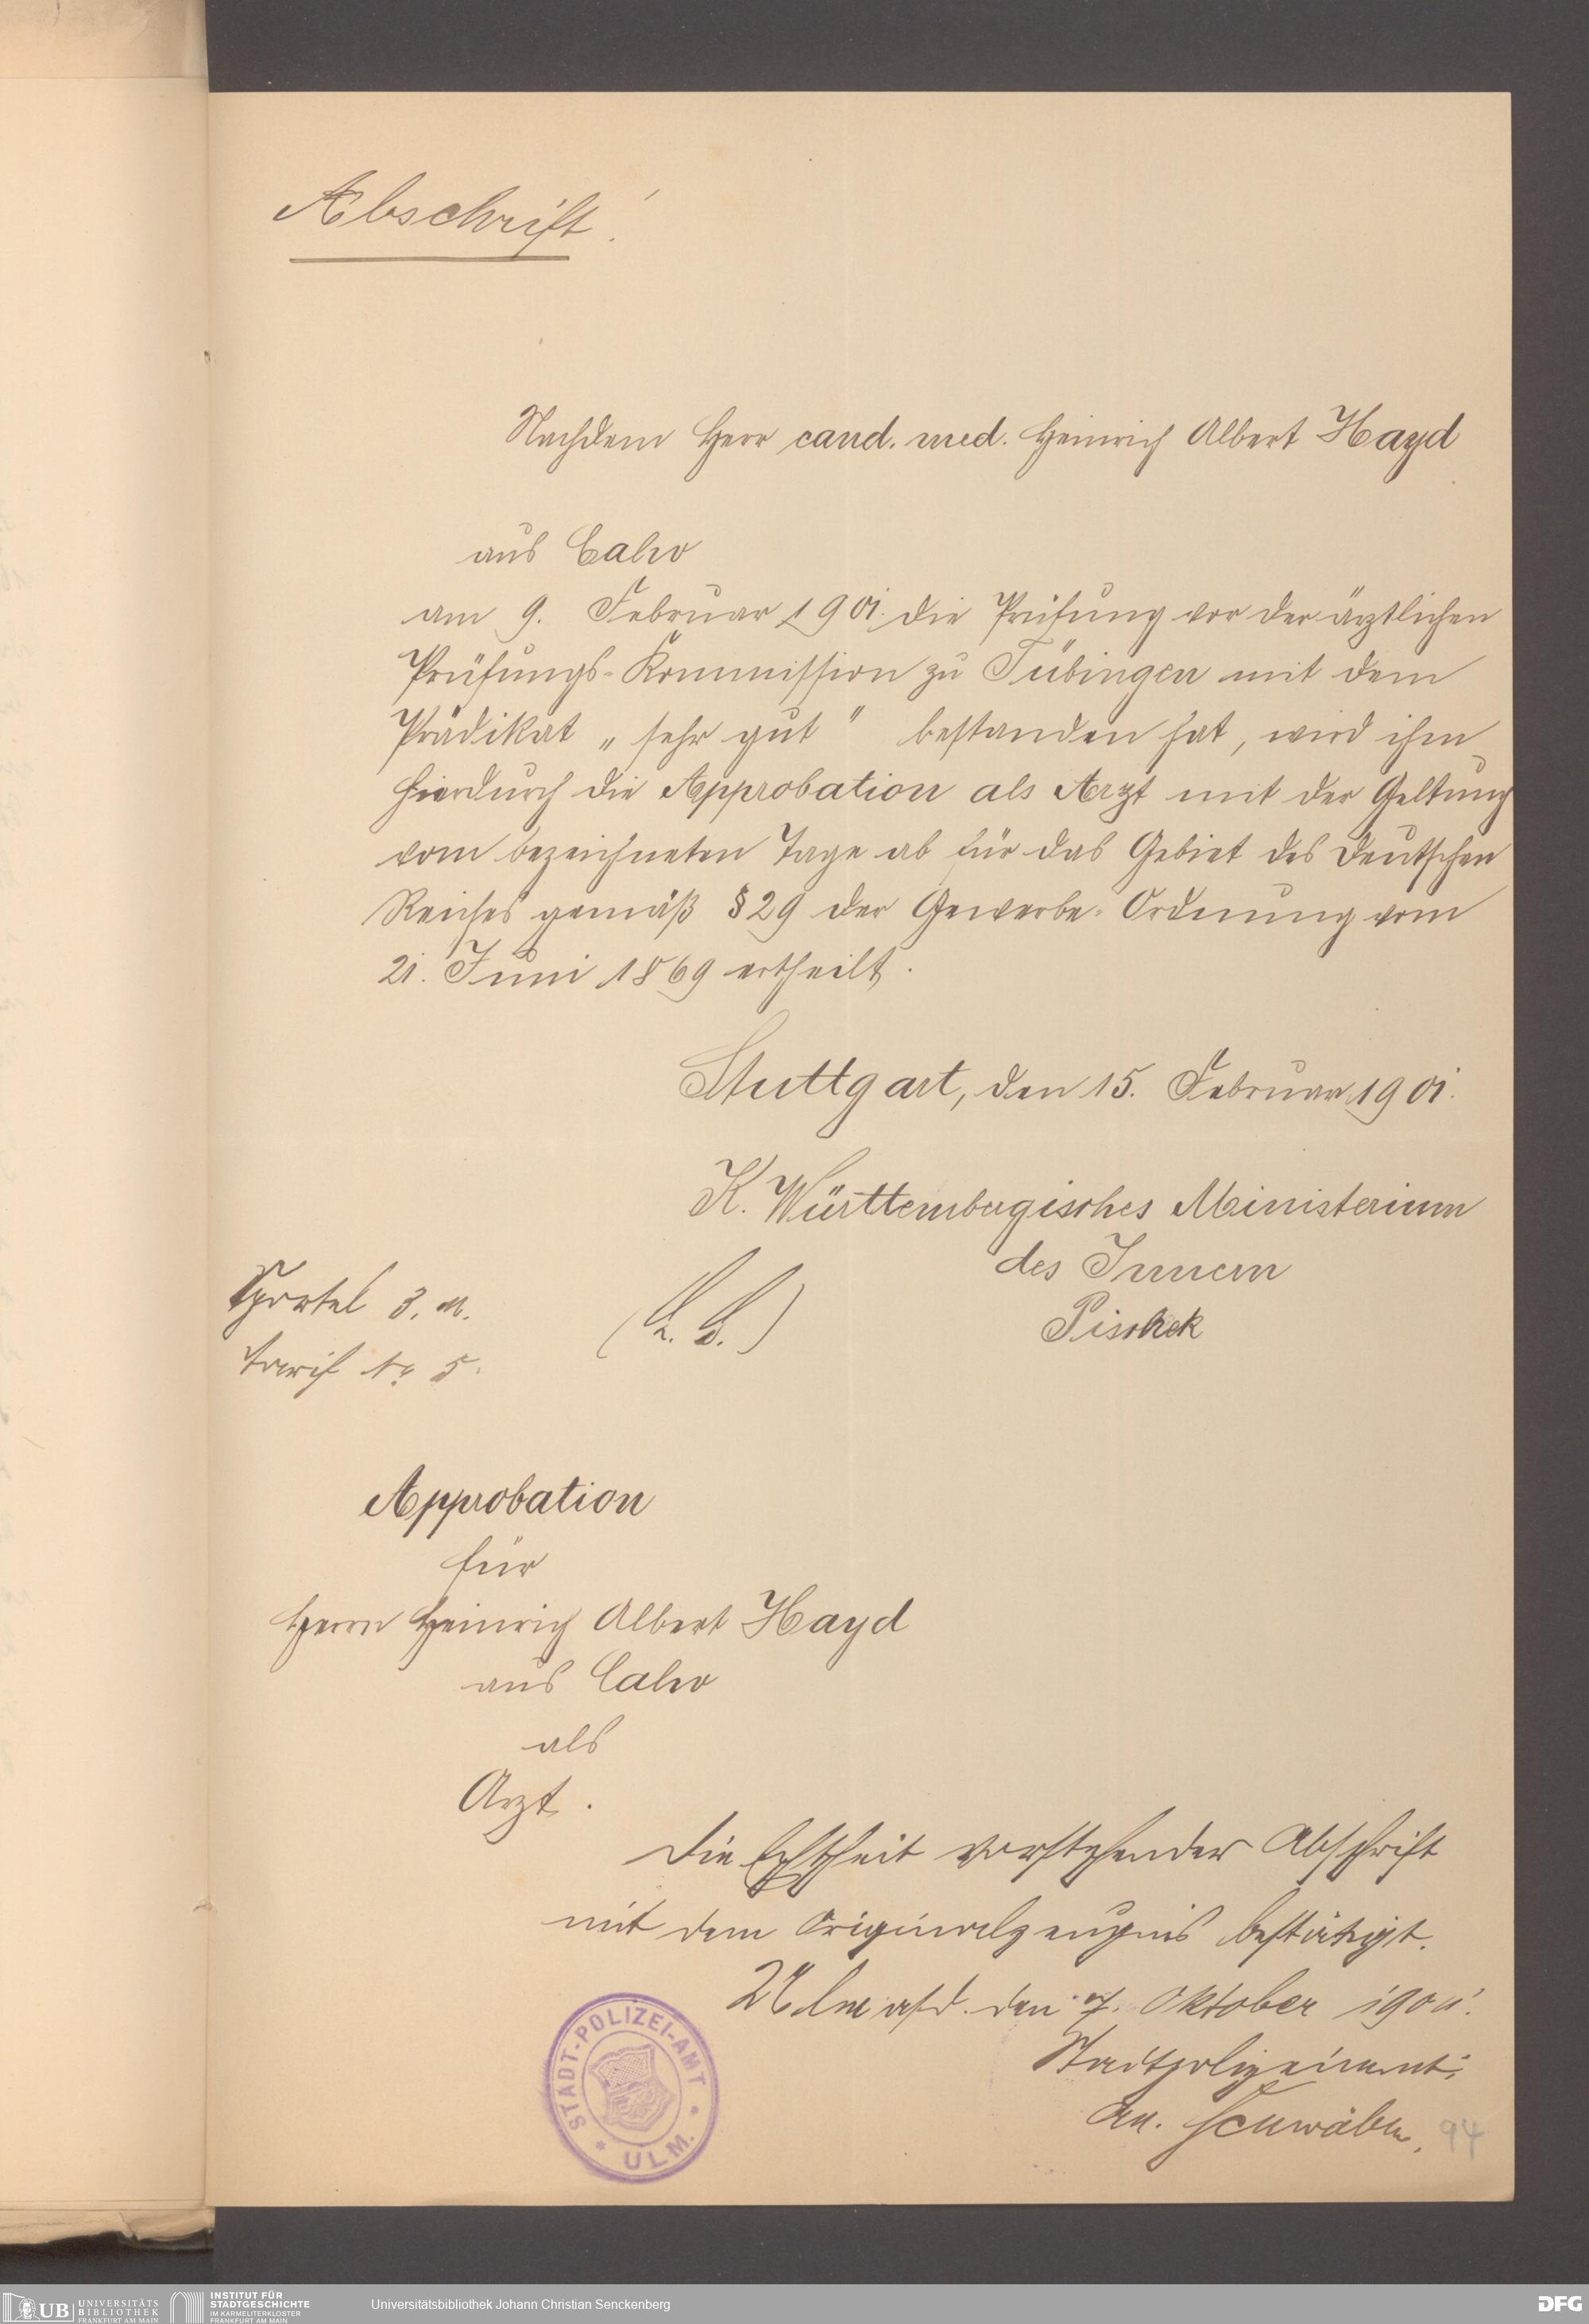 Abschrift!
Nachdem Herr cand. med. Heinrich Albert Hayd
aus Calw
am 9. Februar 1901. die Prüfung vor der ärztlichen
Prüfungs-Kommission zu Tübingen mit dem
Prädikat „sehr gut" bestanden hat, wird ihm
hierdurch die Approbation als Arzt mit der Geltung
vom bezeichneten Tage ab für das Gebiet des Deutschen
Reiches gemäß § 29 der Gewerbe-Ordnung vom
21. Juni 1869 ertheilt.
Stuttgart, den 15. Februar 1901.
K. Württembergisches Ministerium
des Innern
Pischek
(L. S.)
Sportel 3. M.
Tarif No 5.
Approbation
für
Herrn Heinrich Albert Hayd
aus Calw
als
Arzt.
Die Echtheit vorstehender Abschrift
mit dem Originalzeugnis bestätigt.
Ulm a/d. den 7. Oktober 1901.
Stadtpolizeiamt:
STADT-POLIZEI-AMT
* ULM. *
94
UB UNIVERSITÄTS
BIBLIOTHEK
FRANKFURT AM MAIN
INSTITUT FÜR
STADTGESCHICHTE
IM KARMELITERKLOSTER
FRANKFURT AM MAIN
Universitätsbibliothek Johann Christian Senckenberg
DFG